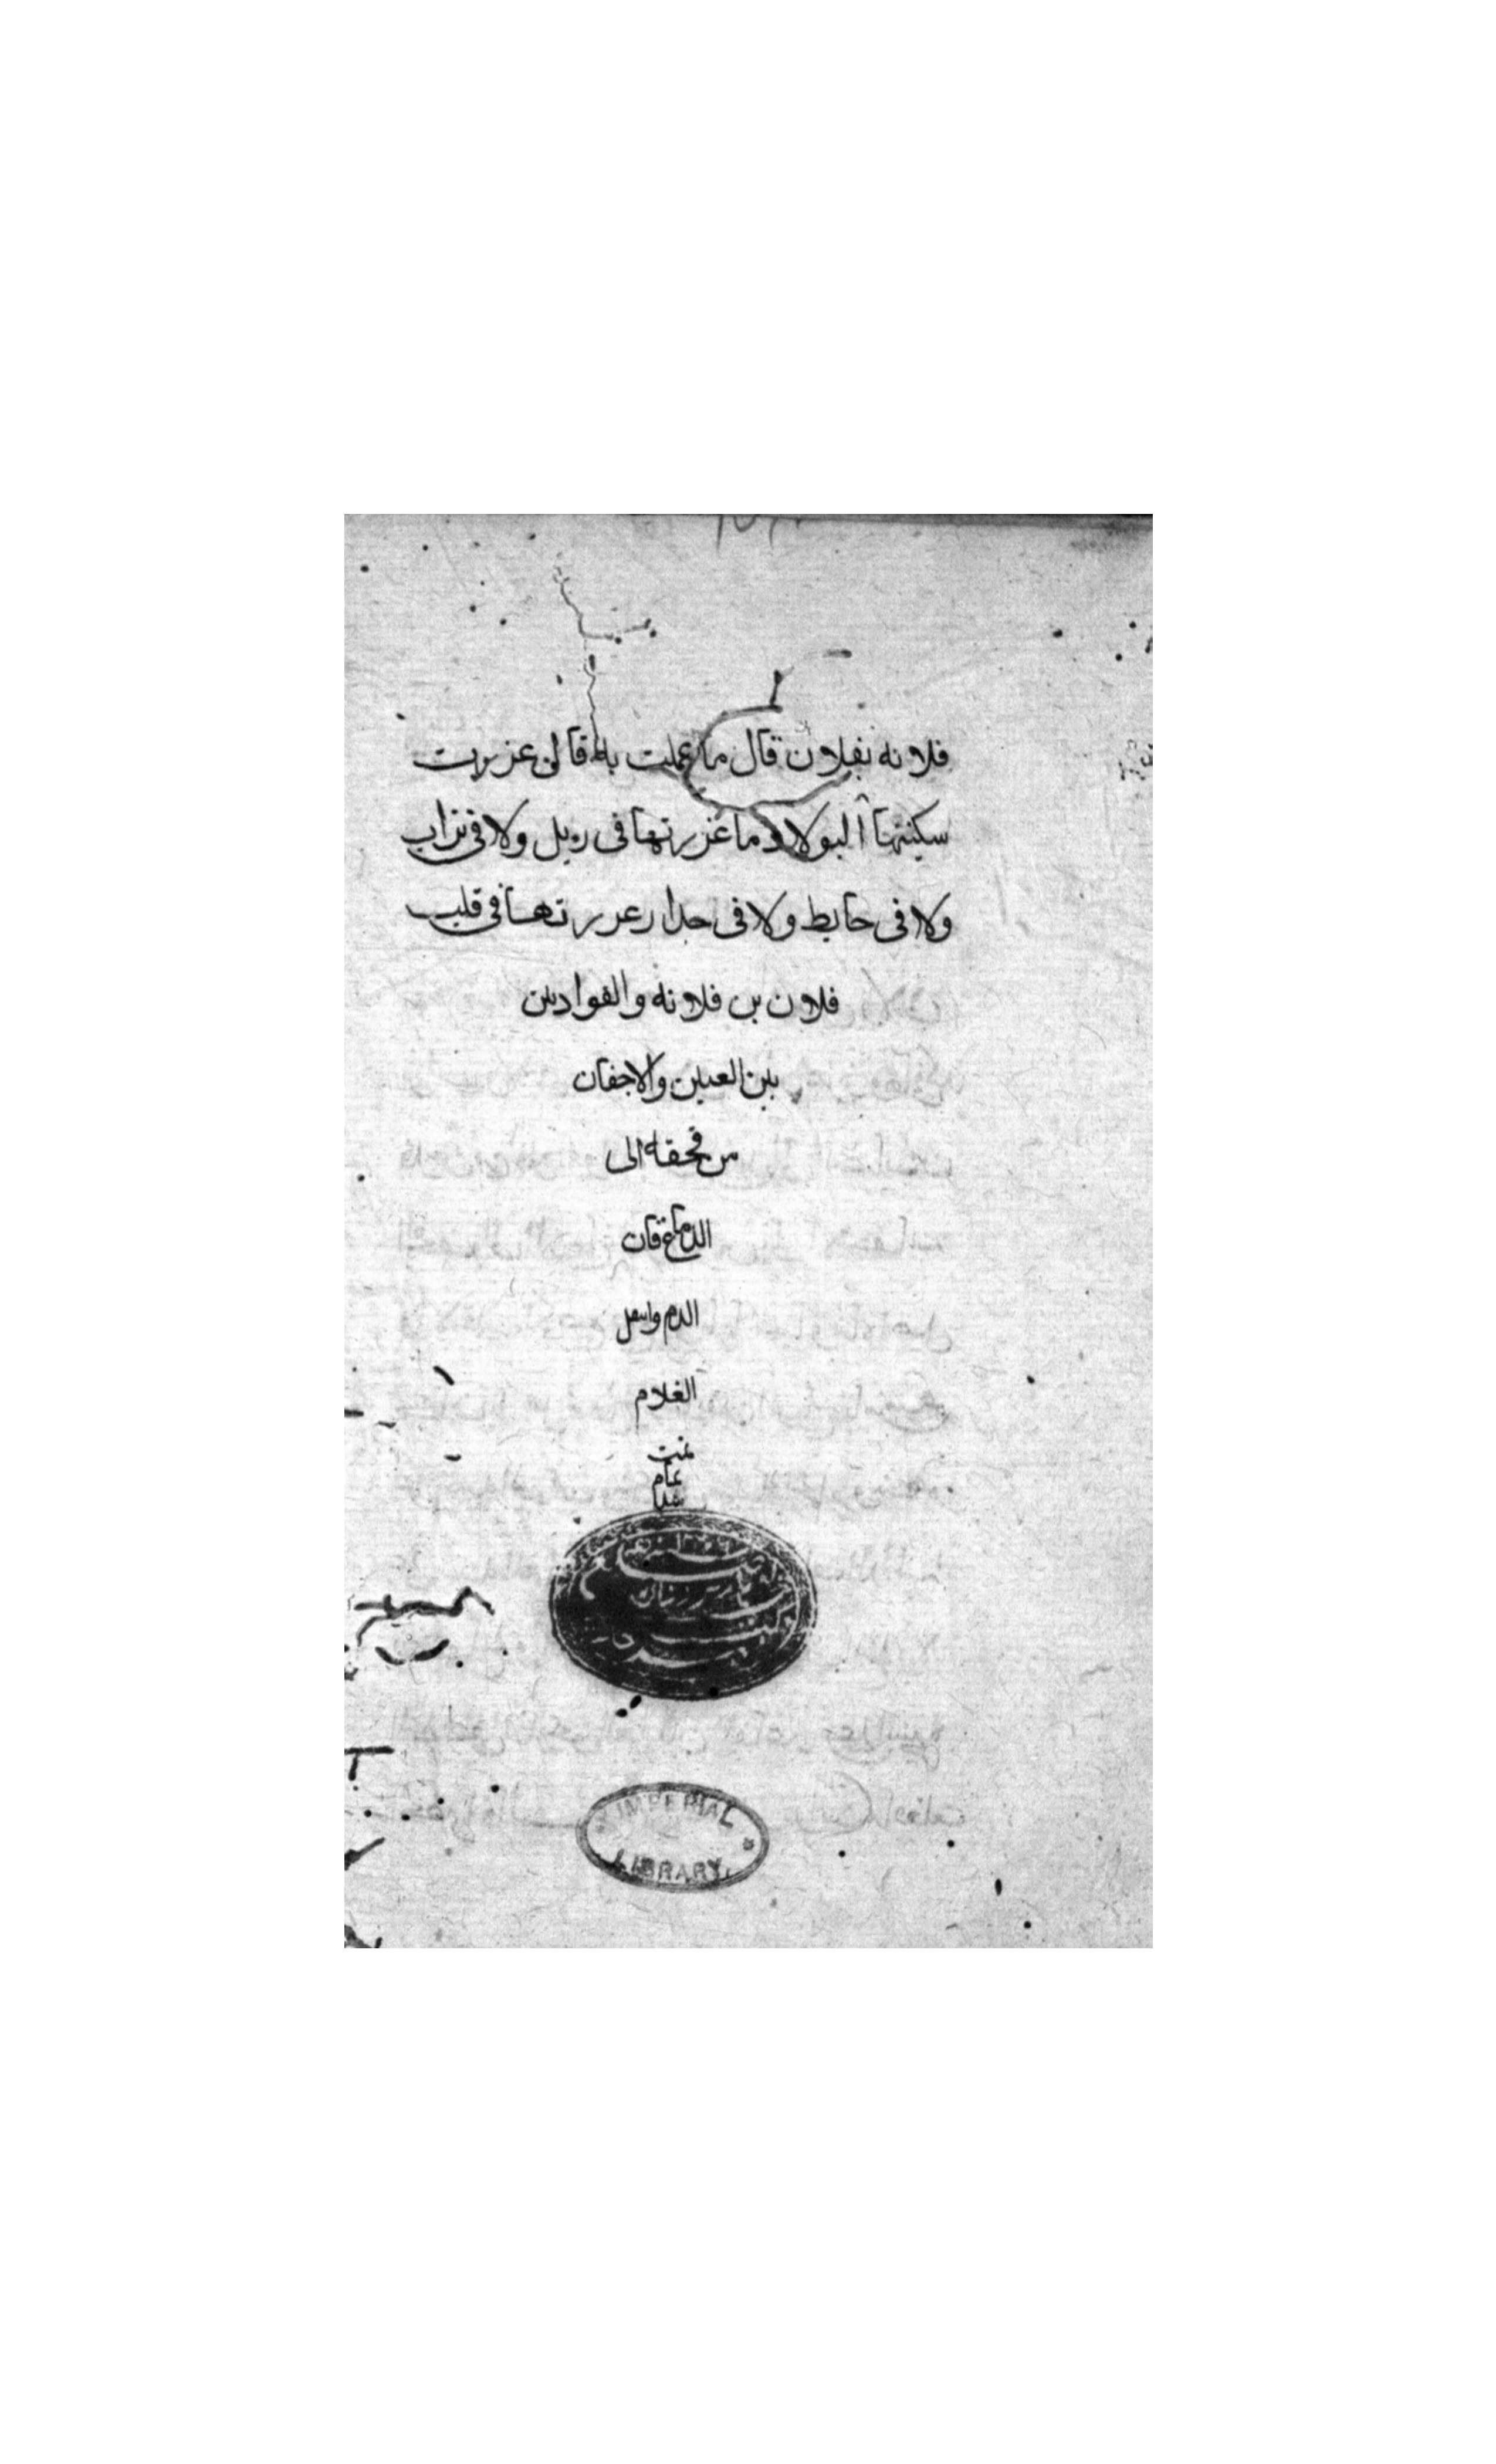 فلانه بفلان قال ما عملت به قالن عزرت
سكينتها البولاد ما غزرتها فى زبل ولا فى تراب
ولا فى حايط ولا فى جدار عررتها فى قلب
فلان بن فلانه والفواد بين
بين العين والاجفان
من قحفه الى
الدماغ فان
الدم واسعل
الغلام
تمت
تمام
شد
IMPERIAL
LIBRARY